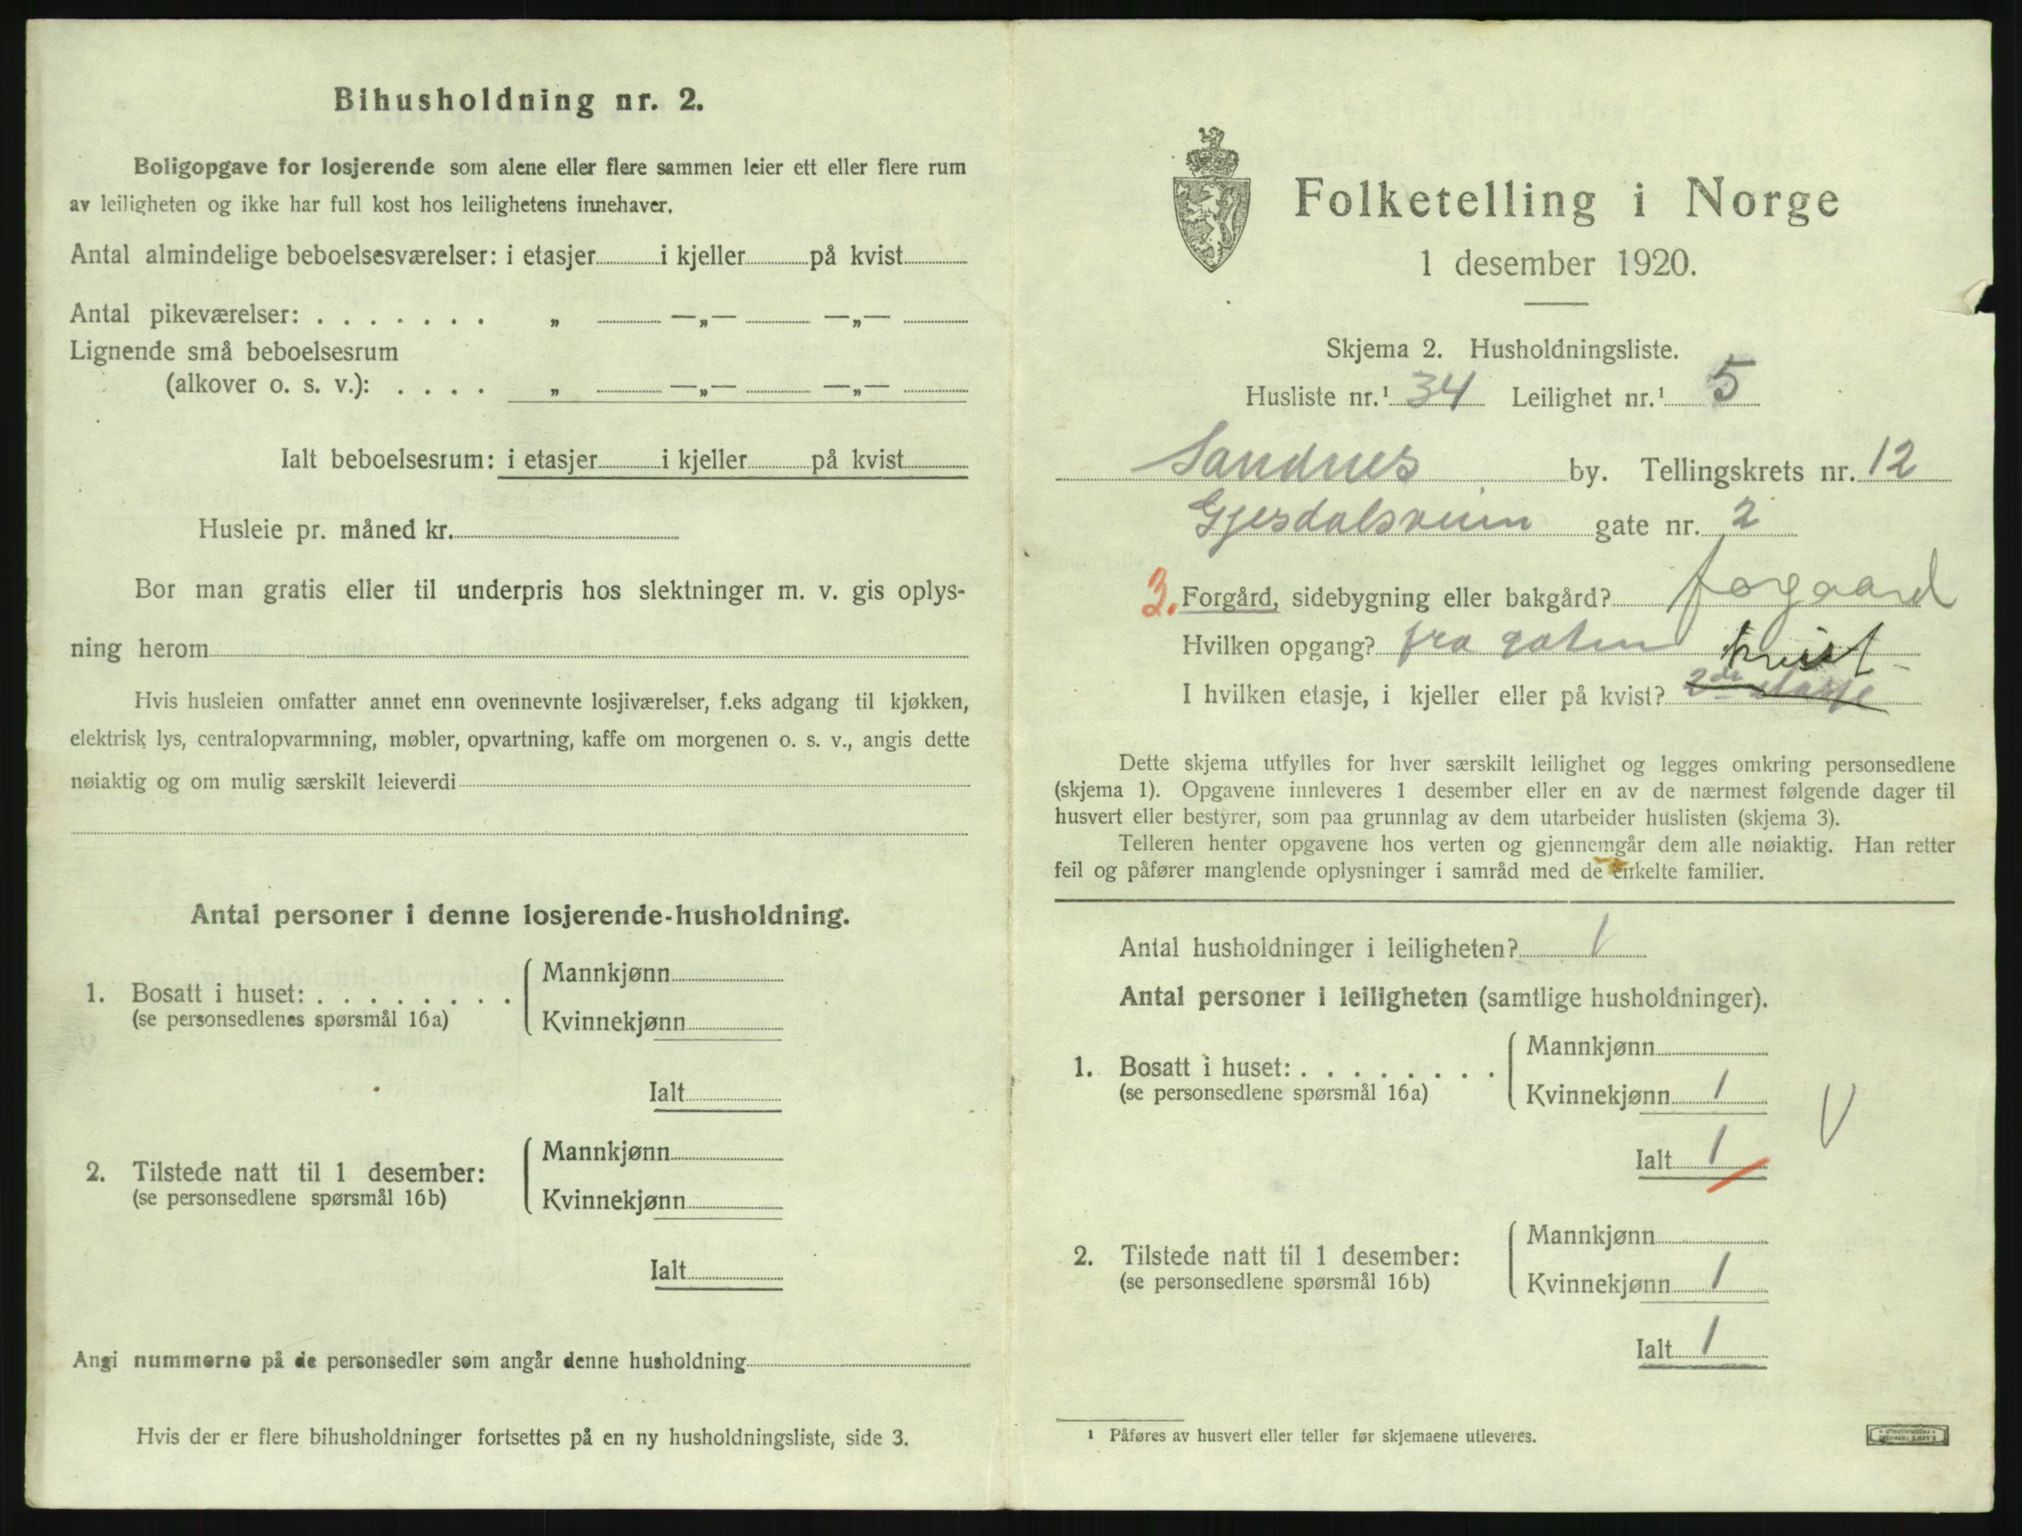 Bihusholdning nr. 2.
Boligopgave for losjerende som alene eller flere sammen leier ett eller flere rum
av leiligheten og ikke har full kost hos leilighetens innehaver.
Antal almindelige beboelsesværelser: i etasjer i kjeller på kvist
Antal pikeværelser: . . . . . . . „ —„— —„—
Lignende små beboelsesrum
(alkover o. s. v.): . . . . „ —„— —„—
Ialt beboelsesrum: i etasjer i kjeller på kvist
Husleie pr. måned kr.
Bor man gratis eller til underpris hos slektninger m. v. gis oplys-
ning herom
Hvis husleien omfatter annet enn ovennevnte losjiværelser, f.eks adgang til kjøkken,
elektrisk lys, centralopvarmning, møbler, opvartning, kaffe om morgenen o. s. v., angis dette
nøiaktig og om mulig særskilt leieverdi
Antal personer i denne losjerende-husholdning.
1. Bosatt i huset: . . . . . . . .
(se personsedlenes spørsmål 16a)
Mannkjønn
Kvinnekjønn
Ialt
2. Tilstede natt til 1 desember:
(se personsedlene spørsmål 16b)
Mannkjønn
Kvinnekjønn
Ialt
Angi nummerne på de personsedler som angår denne husholdning
Hvis der er flere bihusholdninger fortsettes på en ny husholdningsliste, side 3.
Folketelling i Norge
1 desember 1920.
Skjema 2. Husholdningsliste.
Husliste nr.¹ 34 Leilighet nr.¹ 5
Sandnes by. Tellingskrets nr. 12
Gjesdalsveien gate nr. 2
3. Forgård, sidebygning eller bakgård? forgaard
Hvilken opgang? fra gaten
kvist
I hvilken etasje, i kjeller eller på kvist? 2de etasje
Dette skjema utfylles for hver særskilt leilighet og legges omkring personsedlene
(skjema 1). Opgavene innleveres 1 desember eller en av de nærmest følgende dager til
husvert eller bestyrer, som paa grunnlag av dem utarbeider huslisten (skjema 3).
Telleren henter opgavene hos verten og gjennemgår dem alle nøiaktig. Han retter
feil og påfører manglende oplysninger i samråd med de enkelte familier.
Antal husholdninger i leiligheten? 1
Antal personer i leiligheten (samtlige husholdninger).
1. Bosatt i huset: . . . . . . . .
(se personsedlene spørsmål 16a)
Mannkjønn
Kvinnekjønn 1
Ialt 1
V
2. Tilstede natt til 1 desember:
(se personsedlene spørsmål 16b)
Mannkjønn
Kvinnekjønn 1
Ialt 1
¹ Påføres av husvert eller teller før skjemaene utleveres.